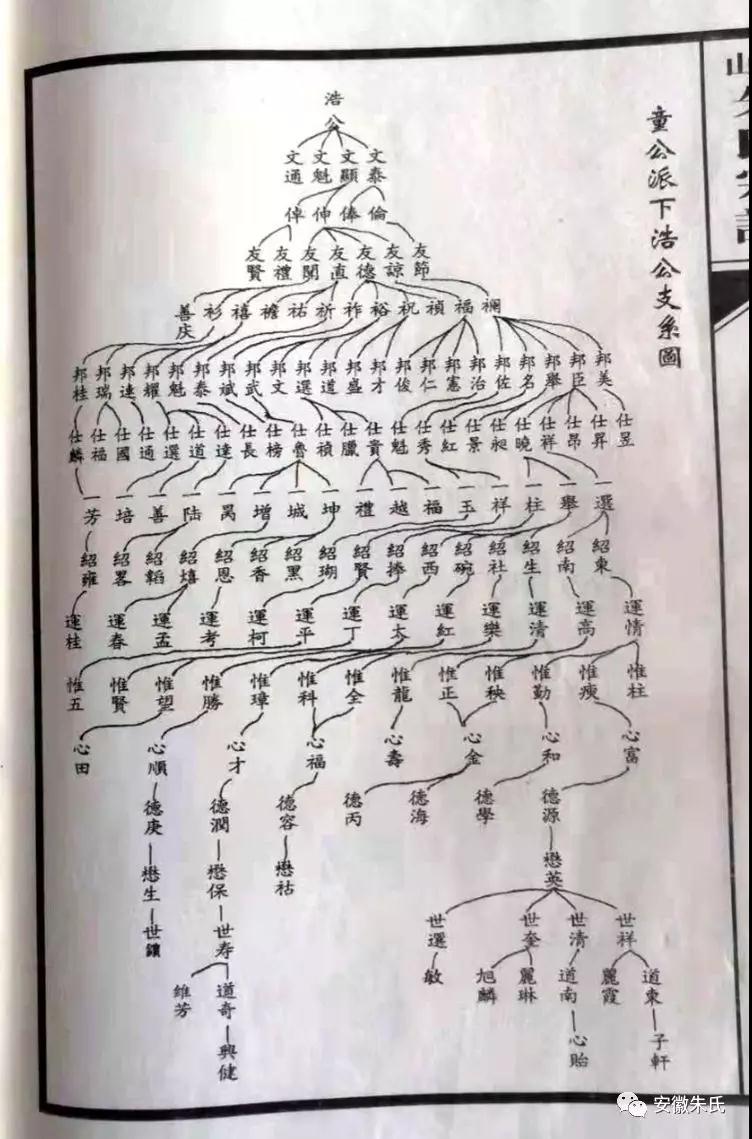 童公派下浩公支系圖
浩公
文泰 文顯 文魁 文通
倫 俸 伸 倬
友節 友諒 友德 友直 友聞 友禮 友賢
襴 福 禎 祝 裕 祚 祈 祐 襜 禧 衫 善庆
邦美 邦臣 邦舉 邦名 邦佐 邦治 邦憲 邦仁 邦俊 邦才 邦盛 邦道 邦選 邦文 邦武 邦斌 邦泰 邦魁 邦耀 邦連 邦瑞 邦桂
仕昱 仕昇 仕昂 仕祥 仕曉 仕昶 仕景 仕紅 仕秀 仕魁 仕貴 仕臘 仕禎 仕魯 仕榜 仕長 仕達 仕道 仕選 仕通 仕國 仕福 仕麟
一選 一舉 一柱 一祥 一玉 一福 一越 一禮 一坤 一城 一增 一昺 一陆 一善 一培 一芳
紹東 紹南 紹生 紹社 紹碗 紹西 紹捧 紹賢 紹瑚 紹黑 紹香 紹恩 紹熺 紹韜 紹畧 紹雍
運情 運高 運清 運樂 運紅 運太 運丁 運平 運柯 運考 運孟 運春 運桂
惟柱 惟瘐 惟勤 惟秧 惟正 惟龍 惟全 惟科 惟璋 惟勝 惟望 惟賢 惟五
心富 心和 心金 心壽 心福 心才 心順 心田
德源 德學 德海 德丙 德容 德潤 德庚
懋英 懋枯 懋保 懋生
世祥 世清 世奎 世選 世寿 世鑲
道東 麗霞 道南 麗琳 旭麟 敏 道奇 維芳
子軒 心貽 興健
安徽朱氏